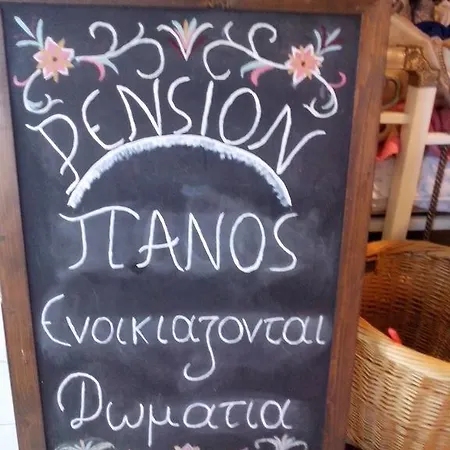 PENSION
ΠANOS
Ενοικιαζονται
Δωματια